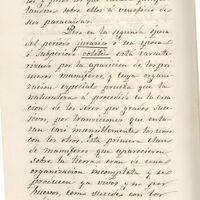 tandose sobre ellos á beneficio de
sus paracaidas.
Pero en la segunda época
del periodo jurasico ó sea época
ó subperiodo oolítico está caracte-
rizado por la aparicion de los pri-
meros mamiferos, y cuya organi-
zacion especial prueba que la
naturaleza á procedido en la crea-
cion de los seres por grados suce-
sivos, por transiciones que en-
tran casi insensiblemente los unos
con los otros. Esta primera clase
de mamiferos que aparecieron
sobre la tierra eran de una
organizacion incompleta y se
producian ya vivos y no por
huevos, como sucede con los